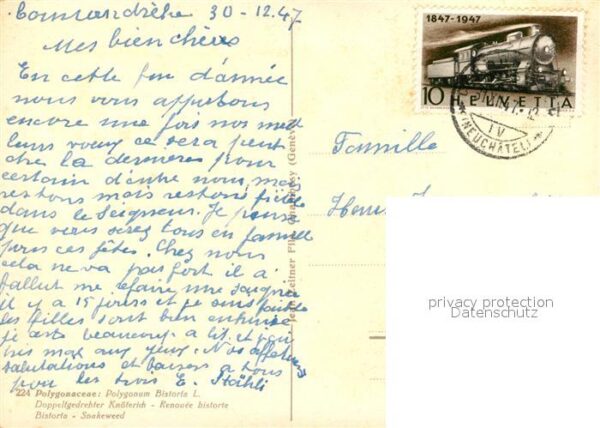 Commandrèche 30-12.47
Mes bien chères
En cette fin d'année
nous vous apportons
encore une fois nos meil
leurs voeux ce sera peut
être la dernières pour
certain d'entre nous, mais
restons mais restons fidèle
dans le Seigneur. Je pense
que vous serez tous en famille
pour ces fêtes. Chez nous
cela ne va pas fort il a
fallut me refaire une saignée
il y a 15 jours et je suis
les filles sont bien
je reste beaucoup a lit et
mal aux yeux. Nos affectueuses
salutations et baisers a tous
pour les trois E. Stähli
224 Polygonaceae: Polygonum Bistorta L.
Doppeltgedrehter Knöterich - Renouée bistorte
Bistorta - Snakeweed
1847-1947
10 HELVETIA
IV
(NEUCHÂTEL)
Famille
privacy protection
Datenschutz